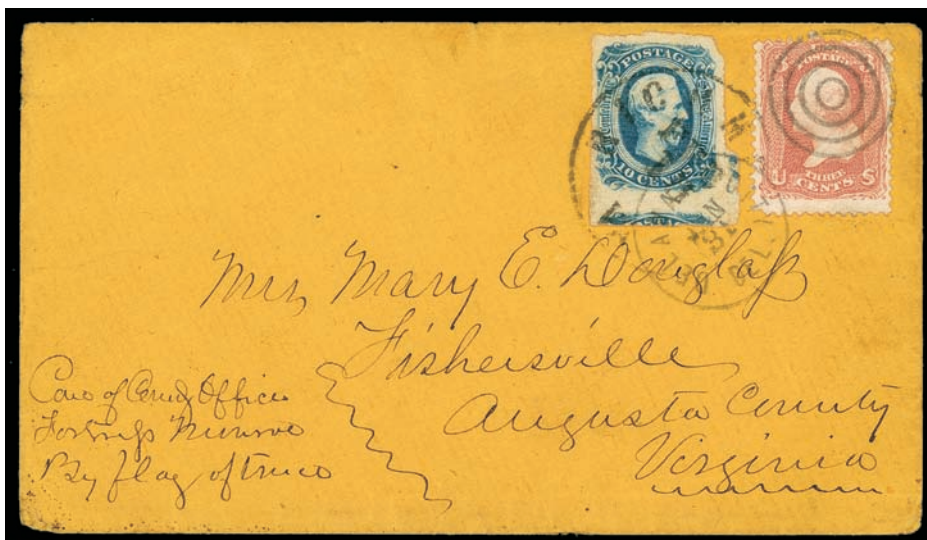 POSTAGE
Confederate States America
10 CENTS
POSTAGE
U S
THREE
CENTS
Mrs Mary E. Douglaſs
Fishersville
Augusta County
Virginia
Care of Comdg Officer
Fortress Munroe
By flag of truce